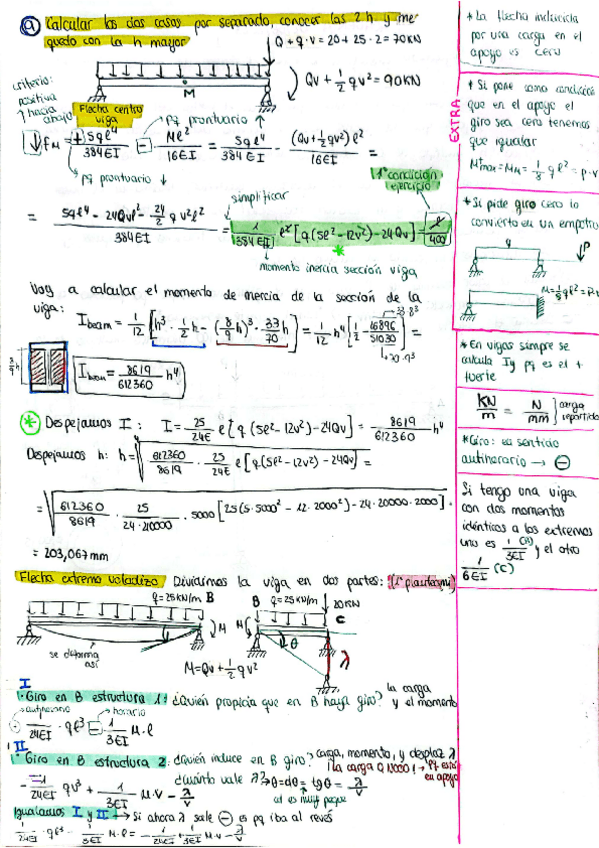 a) Calcular los dos casos por separado, conocer las 2 h y me
quedo con la h mayor
Q + q·v = 20 + 25·2 = 70KN
Qv + 1/2 qv² = 90KN
M
criterio:
positiva
hacia
abajo
Flecha centro
viga
pq prontuario
↓ fM = + 5ql⁴/384EI - Ml²/16EI = 5ql⁴/384EI - (Qv + 1/2 qv²) l²/16EI =
pq prontuario ↓
simplificar
1ª condición
ejercicio
= 5ql⁴ - 24Qvl² - 24/2 q v² l² / 384EI = 1/384EI l² [q(5l² - 12v²) - 24Qv] = l/400
*
momento inercia sección viga
Voy a calcular el momento de inercia de la sección de la
viga: I beam = 1/12 [h³ · 1/2 h - (8/9 h)³ · 33/70 h] = 1/12 h⁴ [1/2 - 16896/51030] =
33·8³
70·9³
I beam = 8619/612360 h⁴
* Despejamos I: I = 25/24E l [q (5l² - 12v²) - 24Qv] = 8619/612360 h⁴
Despejamos h: h = ⁴√ 612360/8619 · 25/24E l [q (5l² - 12v²) - 24Qv] =
= √ 612360/8619 · 25/24·210000 · 5000 [25 (5·5000² - 12·2000²) - 24·20000·2000] =
= 203,067 mm
Flecha extremo voladizo Dividimos la viga en dos partes:
q = 25KN/m B
B q = 25KN/m
20KN
C
M
M
θ
λ
se deforma
así
M = Qv + 1/2 qv²
I
· Giro en B estructura 1: ¿Quién propicia que en B haya giro? la carga
y el momento
antihorario
horario
- 1/24EI · ql³ - 1/3EI M·l
II
· Giro en B estructura 2: ¿Quién induce en B giro? carga, momento, y desplaz λ
¡la carga Q NOOO! → Pq está
en apoyo
¿Cuánto vale λ? → θ = dθ = tgθ = λ/v
al es muy peque
- 1/24EI qv³ + 1/3EI M·v - λ/v
Igualamos I y II → Si ahora λ sale ⊖ es pq iba al revés
1/24EI · ql³ - 1/3EI M·l = - 1/24EI + 1/3EI M·v - λ/v
EXTRA
* La flecha inducida
por una carga en el
apoyo es cero
* Si pone como condición
que en el apoyo el
giro sea cero tenemos
que igualar
M⁺max = MM = 1/8 q l² = P·v
* Si pide giro cero lo
convierto en un empotra
q
P
M = 1/8 q l² = P·v
* En vigas simpre se
calcula Iy pq es el +
fuerte
KN/m = N/mm } carga
repartida
* Giro: en sentido
antihorario → ⊖
Si tengo una viga
con dos momentos
idénticos a los extremos
uno es 1/3EI y el otro
1/6EI (C)